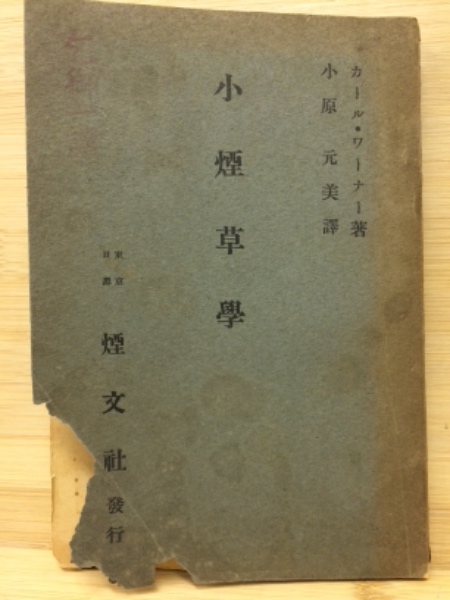 カール・ワーナー著
小原元美譯
小煙草學
東京
煙文社發行